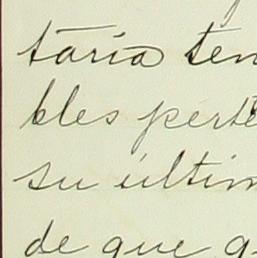 taria ten
bles perte
su últim
de que q